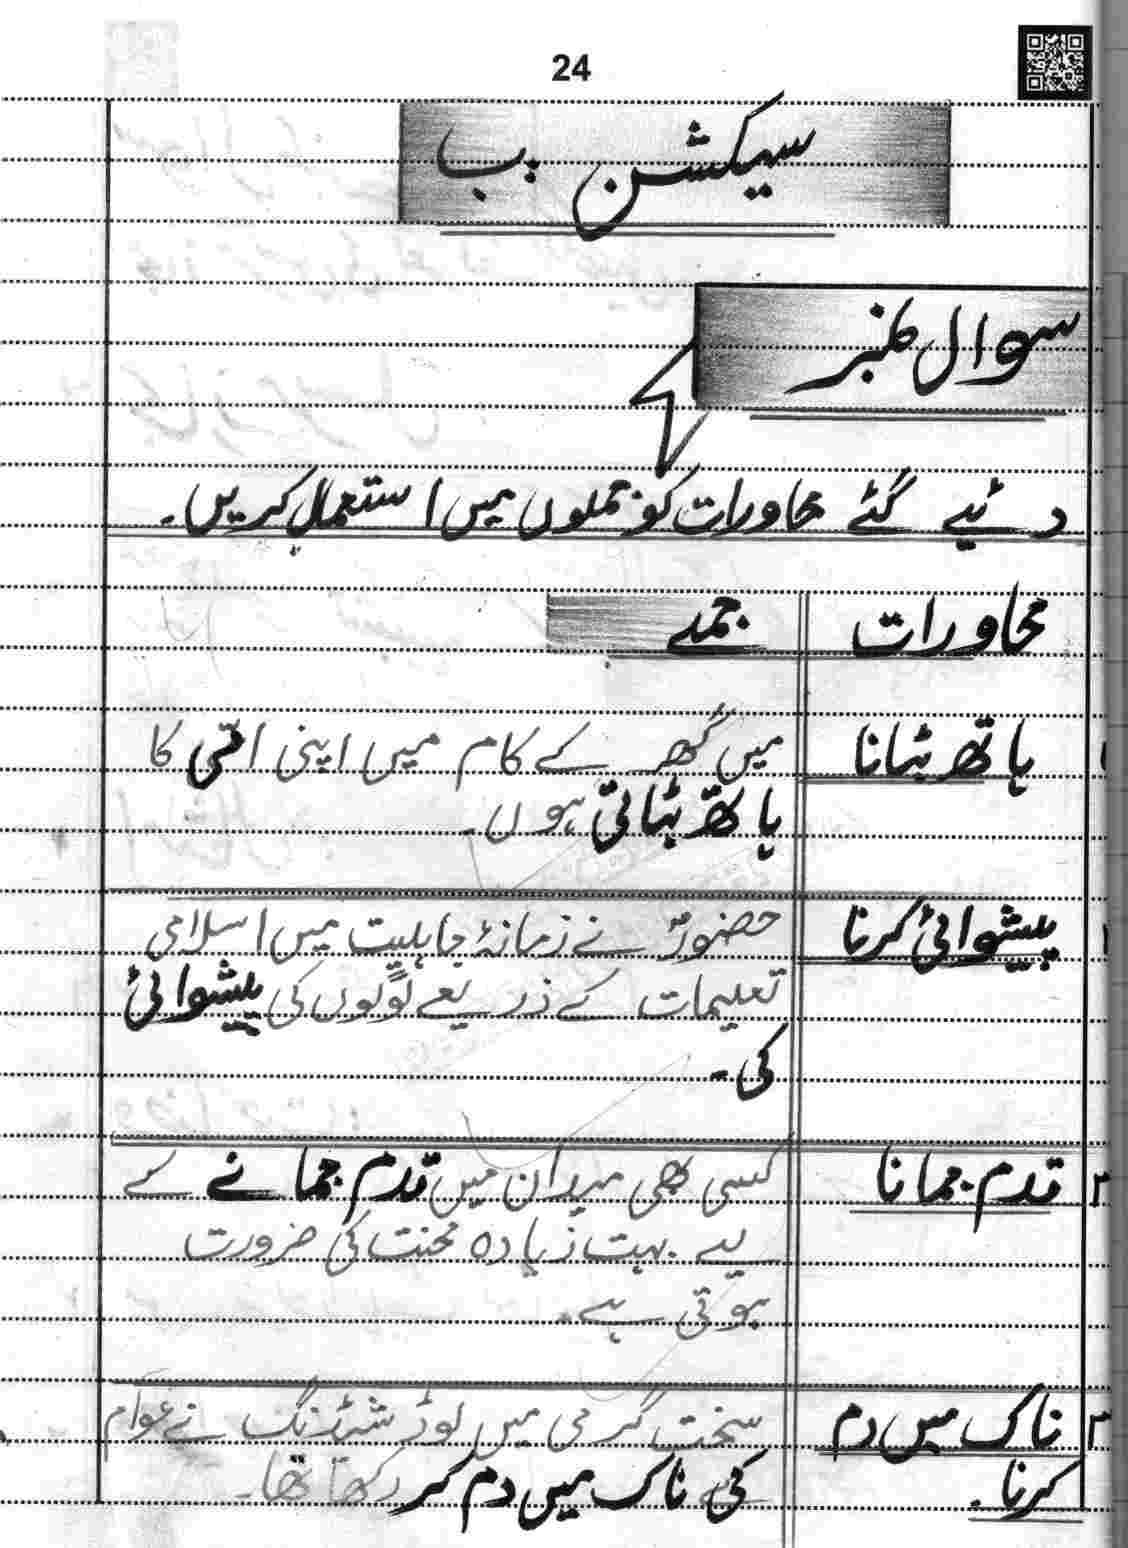 24
سیکشن ب
سوال نمبر
دئیے گئے محاورات کو جملوں میں استعمال کریں۔
محاورات جملے
ہاتھ بٹانا میں گھر کے کام میں اپنی امّی کا
ہاتھ بٹاتی ہوں۔
پیشوائی کرنا حضورؐ نے زمانۂ جاہلیت میں اسلامی
تعلیمات کے ذریعے لوگوں کی پیشوائی
کی۔
۳ قدم جمانا کسی بھی میدان میں قدم جمانے کے
لیے بہت زیادہ محنت کی ضرورت
ہوتی ہے۔
ناک میں دم سخت گرمی میں لوڈ شڈنگ نے عوام
کرنا۔ کی ناک میں دم کر رکھا تھا۔